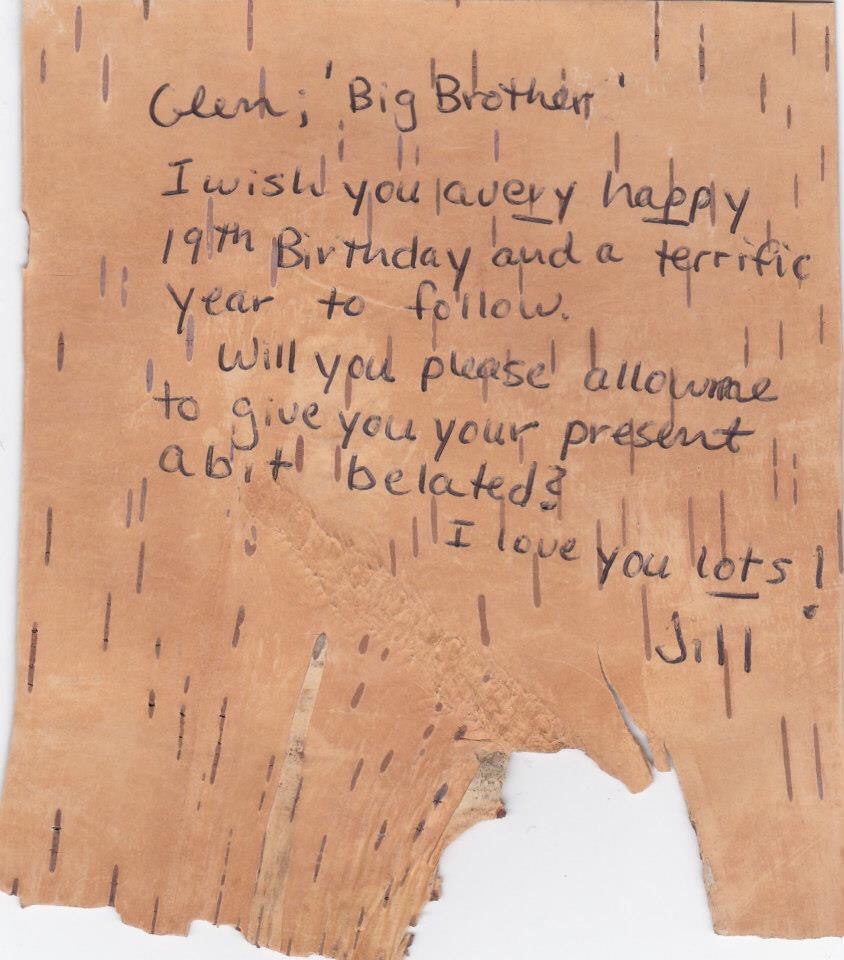 Glenn; 'Big Brother'
I wish you a very happy
19th Birthday and a terrific
year to follow.
Will you please allow me
to give you your present
a bit belated?
I love you lots!
Jill